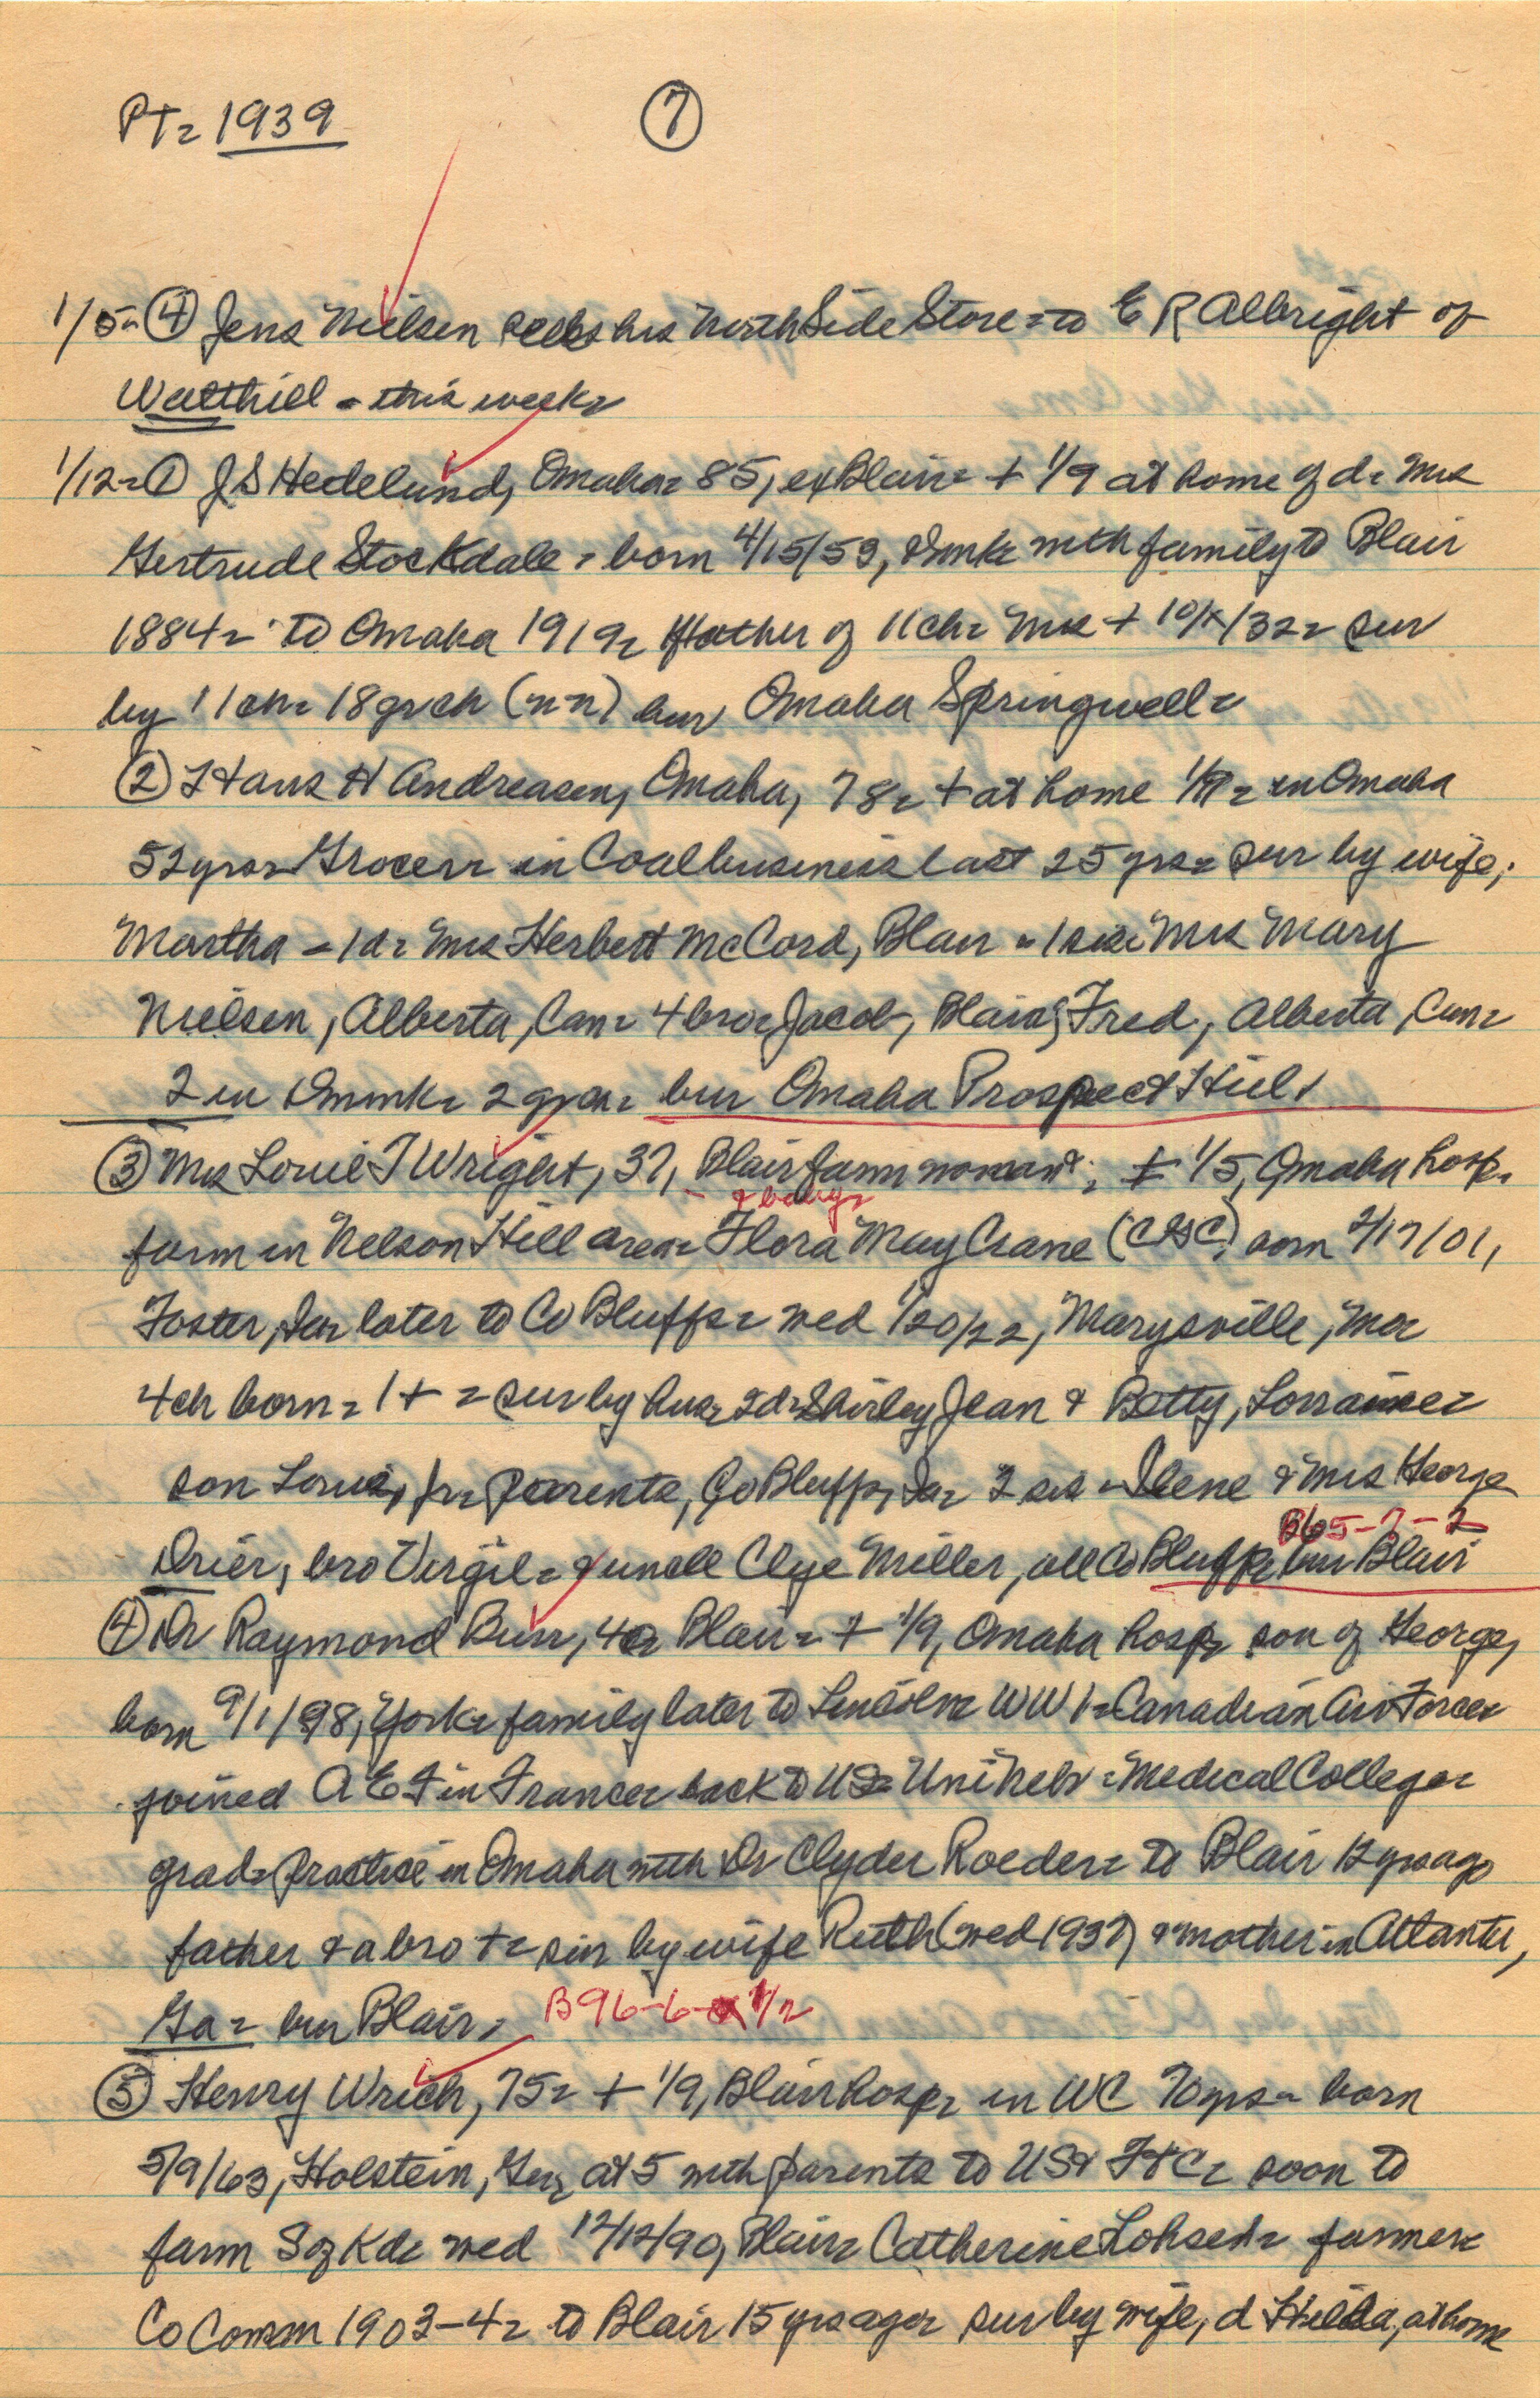 PT= 1939 (7)
1/5= (4) Jens Nielsen sells his North Side Store = to E R Albright of
Walthill = this week=
1/12= (1) J S Hedelund, Omaha= 85, ex Blair= + 1/9 at home of d= Mrs
Gertrude Stockdale = born 4/15/53, Dmk= with family to Blair
1884= to Omaha 1919= father of 11 ch= Mrs + 10/x/32= sur
by 11 ch= 18 grch (n-n) bur Omaha Springwell=
(2) Hans H Andreasen, Omaha, 78= + at home 1/9= in Omaha
52 yrs= Grocer= in Coal business last 25 yrs= sur by wife,
Martha = 1 d= Mrs Herbert McCord, Blair = 1 sis= Mrs Mary
Nielsen, Alberta, Can= 4 bro= Jacob, Blair, Fred, Alberta, Can=
2 in Dmmk= 2 grch= bur Omaha Prospect Hill
(3) Mrs Louie T Wright, 37, Blair farm woman, + 1/5, Omaha hosp=
& baby=
farm in Nelson Hill area= Flora May Crane (C&C) born 2/17/01,
Foster, Ia= later to Co Bluffs= wed 1/20/22, Marysville, Mo=
4 ch born= 1 + = sur by hus= 2 d= Shirley Jean & Betty, Lorraine=
son Louie, jr= parents, Co Bluffs, Ia= 2 sis = Ilene & Mrs George
B65-7-2
Drier, bro Virgil= & uncle Clye Miller, all Co Bluffs= bur Blair
(4) Dr Raymond Burr, 40= Blair= + 1/9, Omaha hosp= son of George,
born 9/1/98, York= family later to Lincoln= WW 1= Canadian Air Force=
joined A E F in France= back to US= Uni Nebr= Medical College=
grad= practice in Omaha with Dr Clyde Roeder= to Blair 12 yrs ago
father & a bro + = sur by wife Ruth (wed 1937) & mother in Atlanta,
Ga= bur Blair= B96-6- 1/2
(5) Henry Wrich, 75= + 1/9, Blair hosp= in WC 70 yrs= born
5/9/63, Holstein, Ger= at 5 with parents to US & Ft C= soon to
farm S of Kd= wed 12/12/90, Blair= Catherine Lohse= farmer=
Co Comm 1903-4= to Blair 15 yrs ago= sur by wife, d Hilda, at home